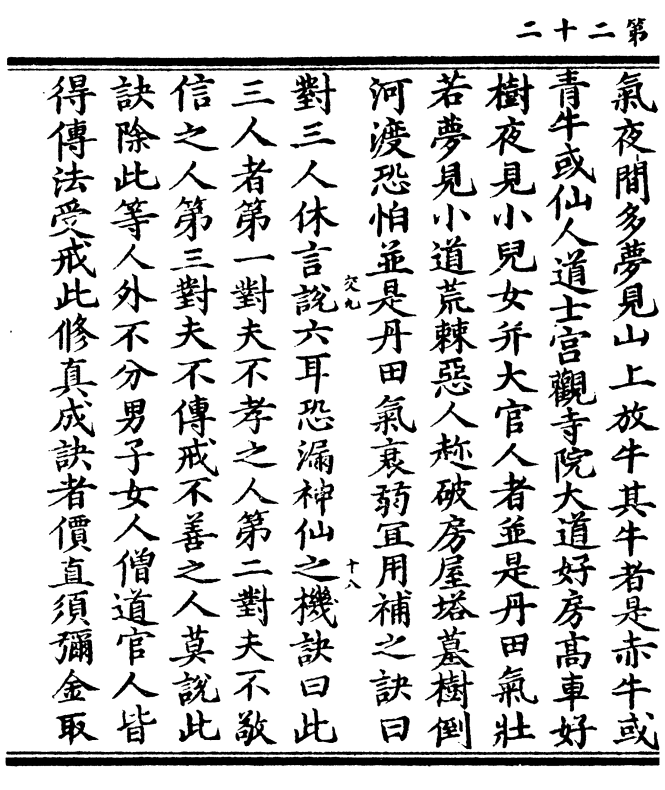 第二十二
氣夜間多夢見山上放牛其牛者是赤牛或
青牛或仙人道士宮觀寺院大道好房高車好
樹夜見小兒女并大官人者並是丹田氣壯
若夢見小道荒棘惡人趂破房屋塔墓樹倒
河渡恐怕並是丹田氣衰弱冝用補之訣曰
交九
十八
對三人休言說六耳恐漏神仙之機訣曰此
三人者第一對夫不孝之人第二對夫不敬
信之人第三對夫不傳戒不善之人莫說此
訣除此等人外不分男子女人僧道官人皆
得傳法受戒此修真成訣者價直須彌金取